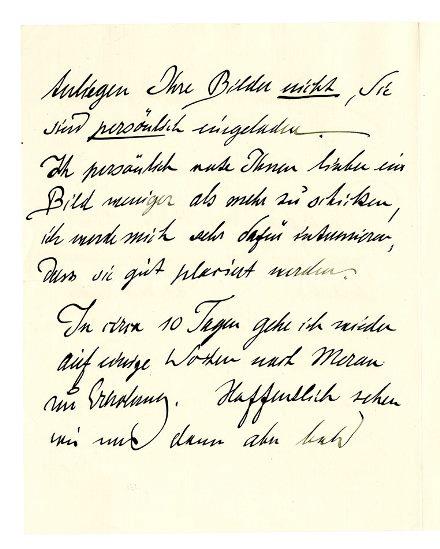 Anliegen Ihre Bilder nicht, Sie
sind persönlich eingeladen.
Ich persönlich rate Ihnen lieber ein
Bild weniger als mehr zu schicken,
ich werde mich sehr dafür interessieren,
dass sie gut placiert werden.
In circa 10 Tagen gehe ich wieder
auf einige Wochen nach Meran
zur Erholung. Hoffentlich sehen
wir uns dann aber bald